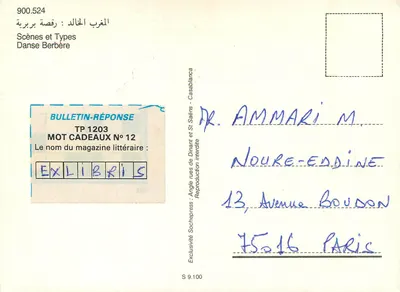 900.524
المغرب الخالد : رقصة بربرية
Scènes et Types
Danse Berbère
BULLETIN-RÉPONSE
TP 1203
MOT CADEAUX Nº 12
Le nom du magazine littéraire :
EXLIBRIS
Exclusivité Sochepress : Angle rues de Dinant et St Saëns - Casablanca
Reproduction interdite
S 9.100
DR. AMMARI M.
NOURE-EDDINE
13, Avenue BOUDON
75016 PARIS